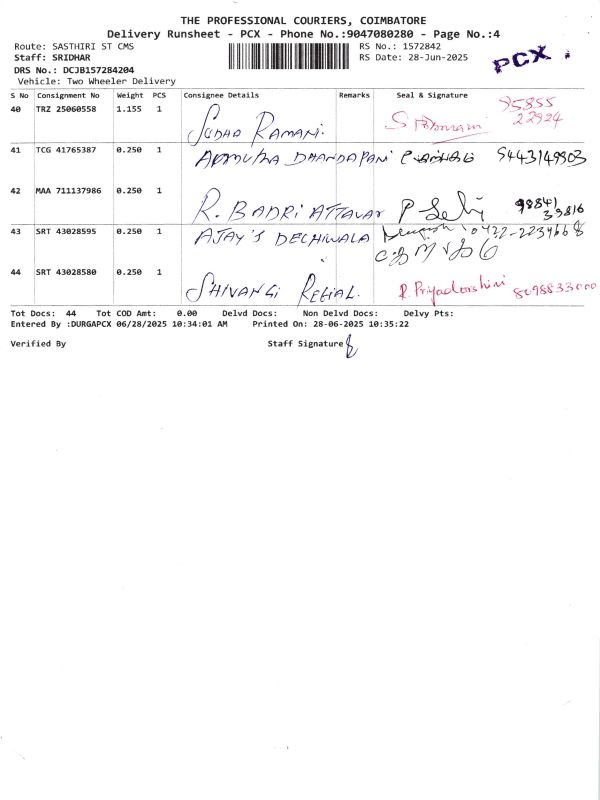 THE PROFESSIONAL COURIERS, COIMBATORE
Delivery Runsheet - PCX - Phone No.:9047080280 - Page No.:4
Route: SASTHIRI ST CMS RS No.: 1572842
Staff: SRIDHAR RS Date: 28-Jun-2025
PCX
DRS No.: DCJB157284204
Vehicle: Two Wheeler Delivery
S No Consignment No Weight PCS Consignee Details Remarks Seal & Signature
40 TRZ 25060558 1.155 1 SUDHA RAMANI. 75855
22924
41 TCG 41765387 0.250 1 DHANDAPANI 9443149903
42 MAA 711137986 0.250 1 R. BADRI ATTAVAR 98841
33816
43 SRT 43028595 0.250 1 AJAY'S DELHIWALA 0422-2234668
44 SRT 43028580 0.250 1 SHIVANGI REGIAL. R. Priyadarshini 8098833000
Tot Docs: 44 Tot COD Amt: 0.00 Delvd Docs: Non Delvd Docs: Delvy Pts:
Entered By :DURGAPCX 06/28/2025 10:34:01 AM Printed On: 28-06-2025 10:35:22
Verified By Staff Signature